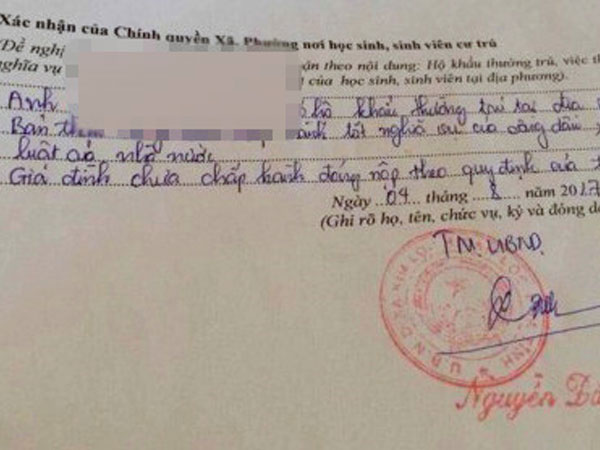 Xác nhận của Chính quyền Xã, Phường nơi học sinh, sinh viên cư trú
(Đề nghị
nghĩa vụ ận theo nội dung: Hộ khẩu thường trú, việc th
t của học sinh, sinh viên tại địa phương).
Anh hộ khẩu thường tại tại địa
Bản thân hành tốt nghĩa vụ của công dân
luật của nhà nước
Gia đình chưa chấp hành đóng nộp theo quy định của t
Ngày 04 tháng 8 năm 2017
(Ghi rõ họ, tên, chức vụ, ký và đóng dấ
TM. UBND.
U.B.N.D XÃ KIM LỘ
Nguyễn